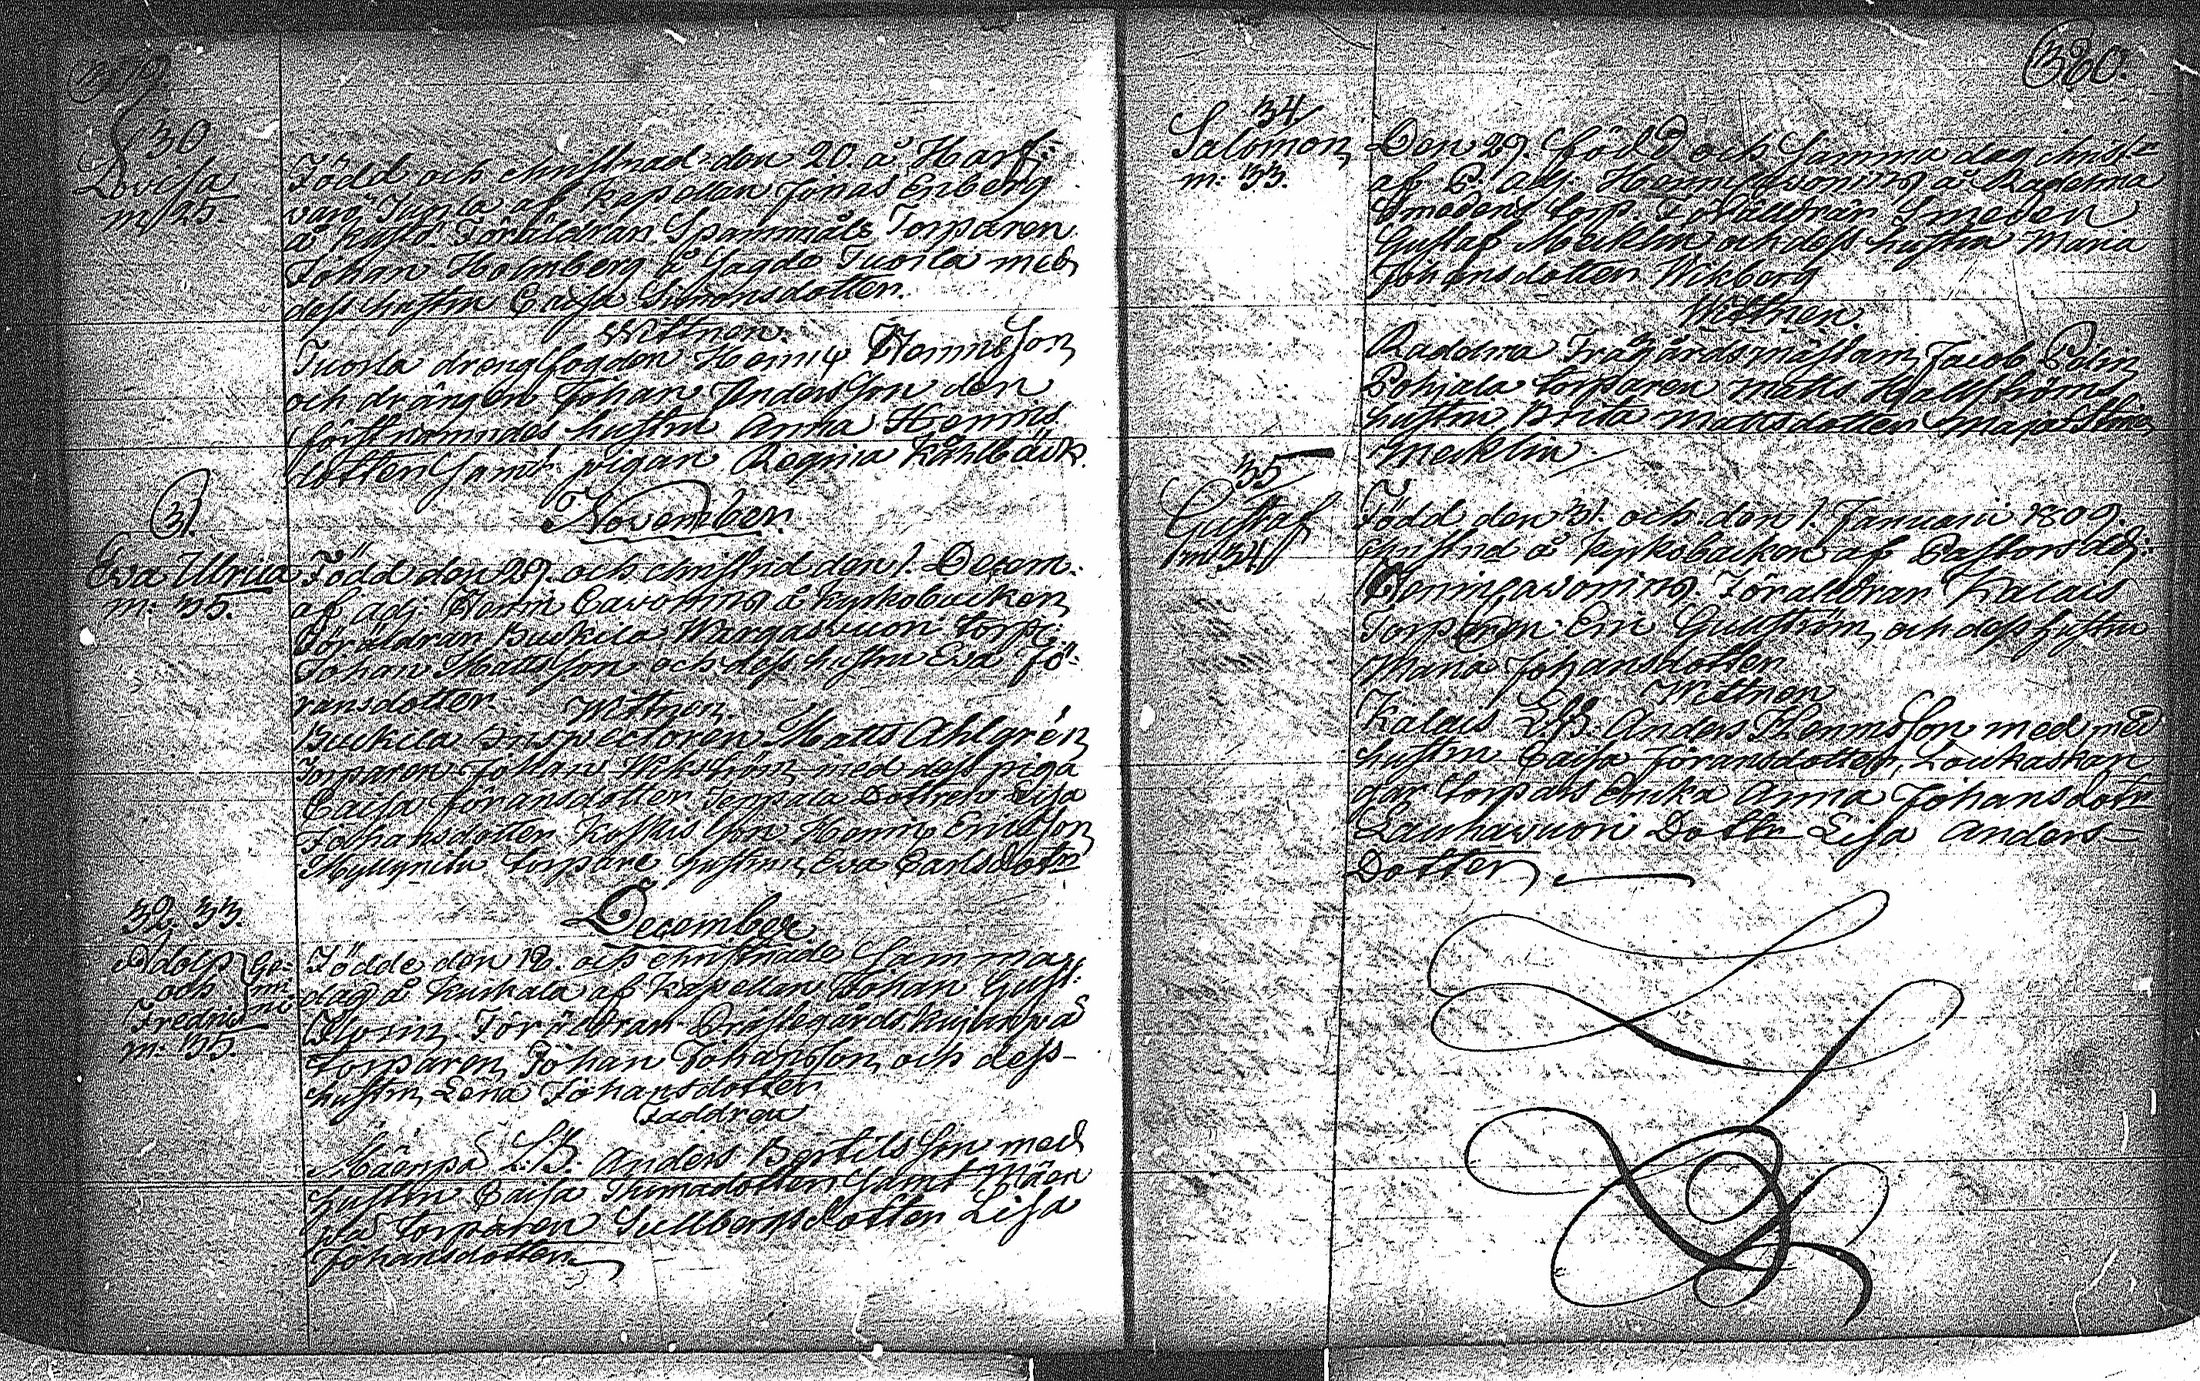 379.
30
Lovisa
m: 25.
Född och christnad den 20. å Harf-
vari Tuorla af Kapellan Jonas Enberg
å Kustö. Föräldrar Spannmåls Torparen
Johan Holmberg å Sagdo Tuorla med
dess hustru Caisa Simonsdotter.
Wittnen.
Tuorla drengfogden Henric Hennicsson
och drängen Johan Andersson den
förstnämndes hustru Anna Henrics
dotter samt pigan Regina Kåhlbäck.
November.
31.
Eva Ulrica
m: 35.
Född den 29. och christnad den 1. Decem.
af Adj: Henric Cavonius å kyrkobacken
Föräldrar Buskila Wargasvuori torp:
Johan Mattsson och dess hustru Eva Jö-
ransdotter.
Wittnen.
Buskila Inspectoren Matts Ahlgrén
Torparen Johan Wikström med dess piga
Caisa Jöransdotter, Dottren Lisa
Johansdotter Koskis Son Henric Ericsson
torpare hustrun Eva Carlsdotter
December
32. 33.
Adolph
och
Fredric
Ge-
mi-
ni
m: 35.
Födde den 12. och christnade samma
dag å Kuskala af Kapellan Johan Gust:
Florin. Föräldrar Prästegårds Kujanpä
torparen Johan Johansson och dess
hustru Lena Johansdotter
Faddren
Mäenpä L:B: Anders Bertilsson med
hustru Caisa Thomasdotter samt Mäen
pä torparen Gullbergs dotter Lisa
Johansdotter
380.
34
Salomon
m: 33.
Den 29. född och samma dag christ=
af P. Adj. Henric Cavonius å Raderma
Smedens torp. Föräldrar Smeden
Gustaf Mecklin och dess hustru Maria
Johansdotter Wikberg
Wittnen.
Raddma Trägårdsmästaren Jacob Palm
Pohjala torparen Matts Hallströms
hustru Brita Mattsdotter Maja Stina
Mecklin
35
Gustaf
m: 34
Född den 31. och den 1. Januarii 1809.
christnad å Kyrkobacken af Pastors Adj:
Henric Cavonius. Föräldrar Kalais
Torparen Eric Gullström, och dess hustru
Maria Johansdotter
Wittnen
Kalais L.B: Anders Thomasson med
hustru Caisa Jöransdotter, Louhaskan
gar torpars Enka Anna Johansdott
Lauhavuori Dotter Lisa Anders=
Dotter